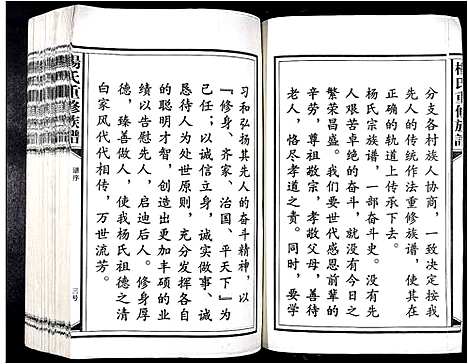 楊氏重修族譜
分支各村族人协商，一致决定按我
先人的传统作法重修族谱，使其在
正确的轨道上传承下去。
杨氏宗族谱，一部奋斗史。没有先
人艰苦卓绝的奋斗，就没有我们今天的
繁荣昌盛。我们要世代感恩前辈的
辛劳，尊祖敬宗，孝敬父母，善待
老人，恪尽孝道之责。同时，要学
习和弘扬其先人的奋斗精神，以
『修身、齐家、治国、平天下』为
己任；以诚信立身，诚实做事、诚
恳待人为处世原则，充分发挥各自
的聪明才智，创造出更加丰硕的业
绩以告慰先人，启迪后人。修身厚
德，臻善做人，使我杨氏祖德之清
白家风代代相传，万世流芳。
楊氏重修族譜
谱序
三号